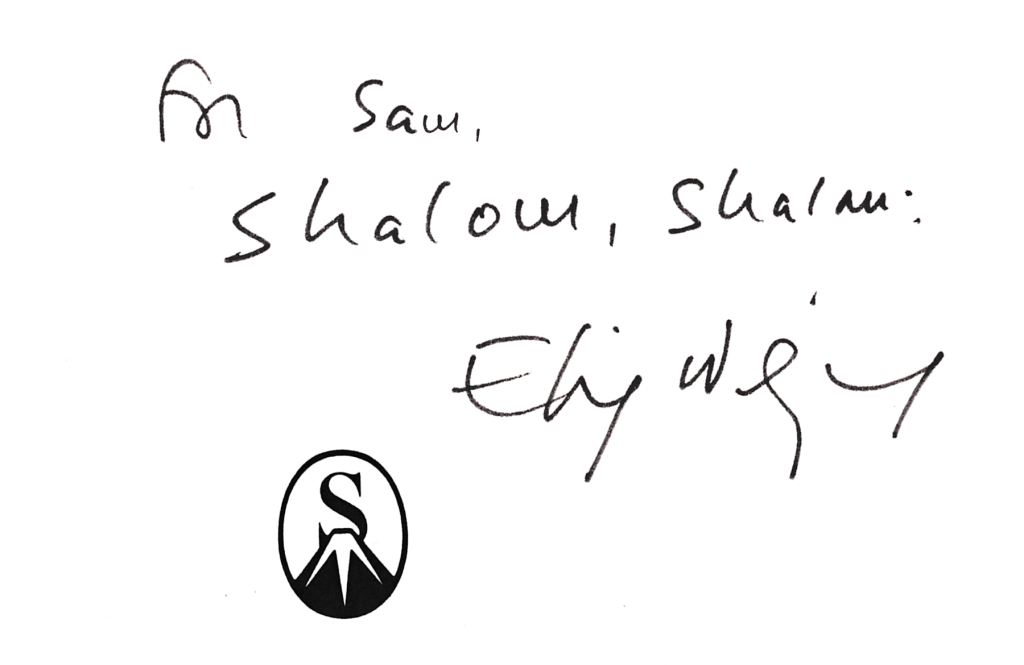 For Sam,
Shalom, Shalom:
Elie Wiesel
S